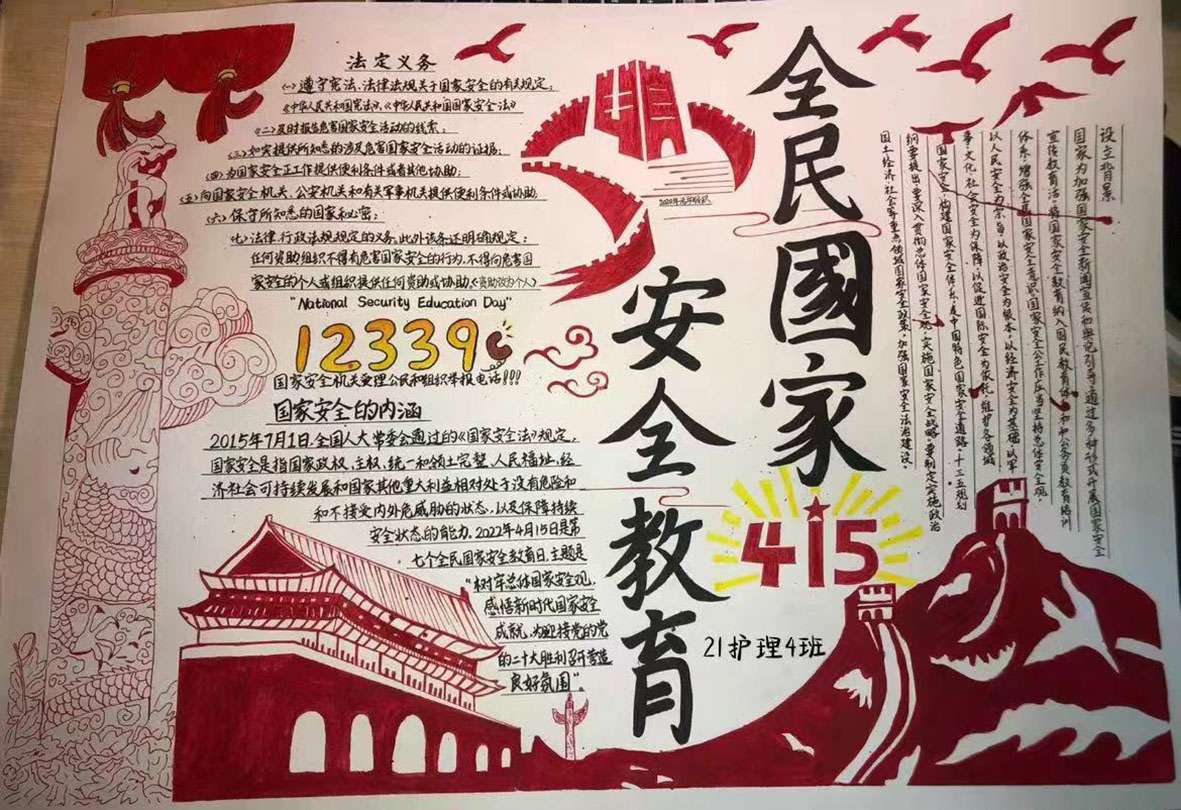 法定义务
(一)遵守宪法、法律法规关于国家安全的有关规定;
《中华人民共和国宪法》、《中华人民共和国国家安全法》
(二)及时报告危害国家安全活动的线索;
(三)如实提供所知悉的涉及危害国家安全活动的证据;
(四)为国家安全工作提供便利条件或者其他协助;
(五)向国家安全机关、公安机关和有关军事机关提供便利条件或协助;
(六)保守所知悉的国家秘密;
(七)法律、行政法规规定的义务,此外该条还明确规定:
任何资助组织不得有危害国家安全的行为,不得向危害国
家安全的个人或组织提供任何资助或协助
"National Security Education Day"
12339
国家安全机关受理公民和组织举报电话!!!
国家安全的内涵
2015年7月1日,全国人大常委会通过的《国家安全法》规定,
国家安全是指国家政权、主权、统一和领土完整、人民福祉、经
济社会可持续发展和国家其他重大利益相对处于没有危险和
和不接受内外危威胁的状态,以及保障持续
安全状态的能力。2022年4月15日是第
七个全民国家安全教育日,主题是
"树牢总体国家安全观,
感悟新时代国家安全
成就,为迎接党的党
的二十大胜利召开营造
良好氛围"。
全民國家
安全教育
415
21护理4班
设立背景
国家为加强国家安全新闻宣传和舆论引导,通过多种形式开展国家安全
宣传教育活动,将国家安全教育纳入国民教育体系和公务员教育培训
体系,增强全民国家安全意识,国家安全工作应当坚持总体安全观,
以人民安全为宗旨,以政治安全为根本,以经济安全为基础,以军
事、文化、社会安全为保障,以促进国际安全为依托,维护各领域
国家安全,构建国家安全体系,走中国特色国家安全道路。十三五规划
纲要提出,要深入贯彻总体国家安全观,实施国家安全战略,要制定实施政治
国土经济社会等重点领域国家安全政策,加强国家安全法治建设。